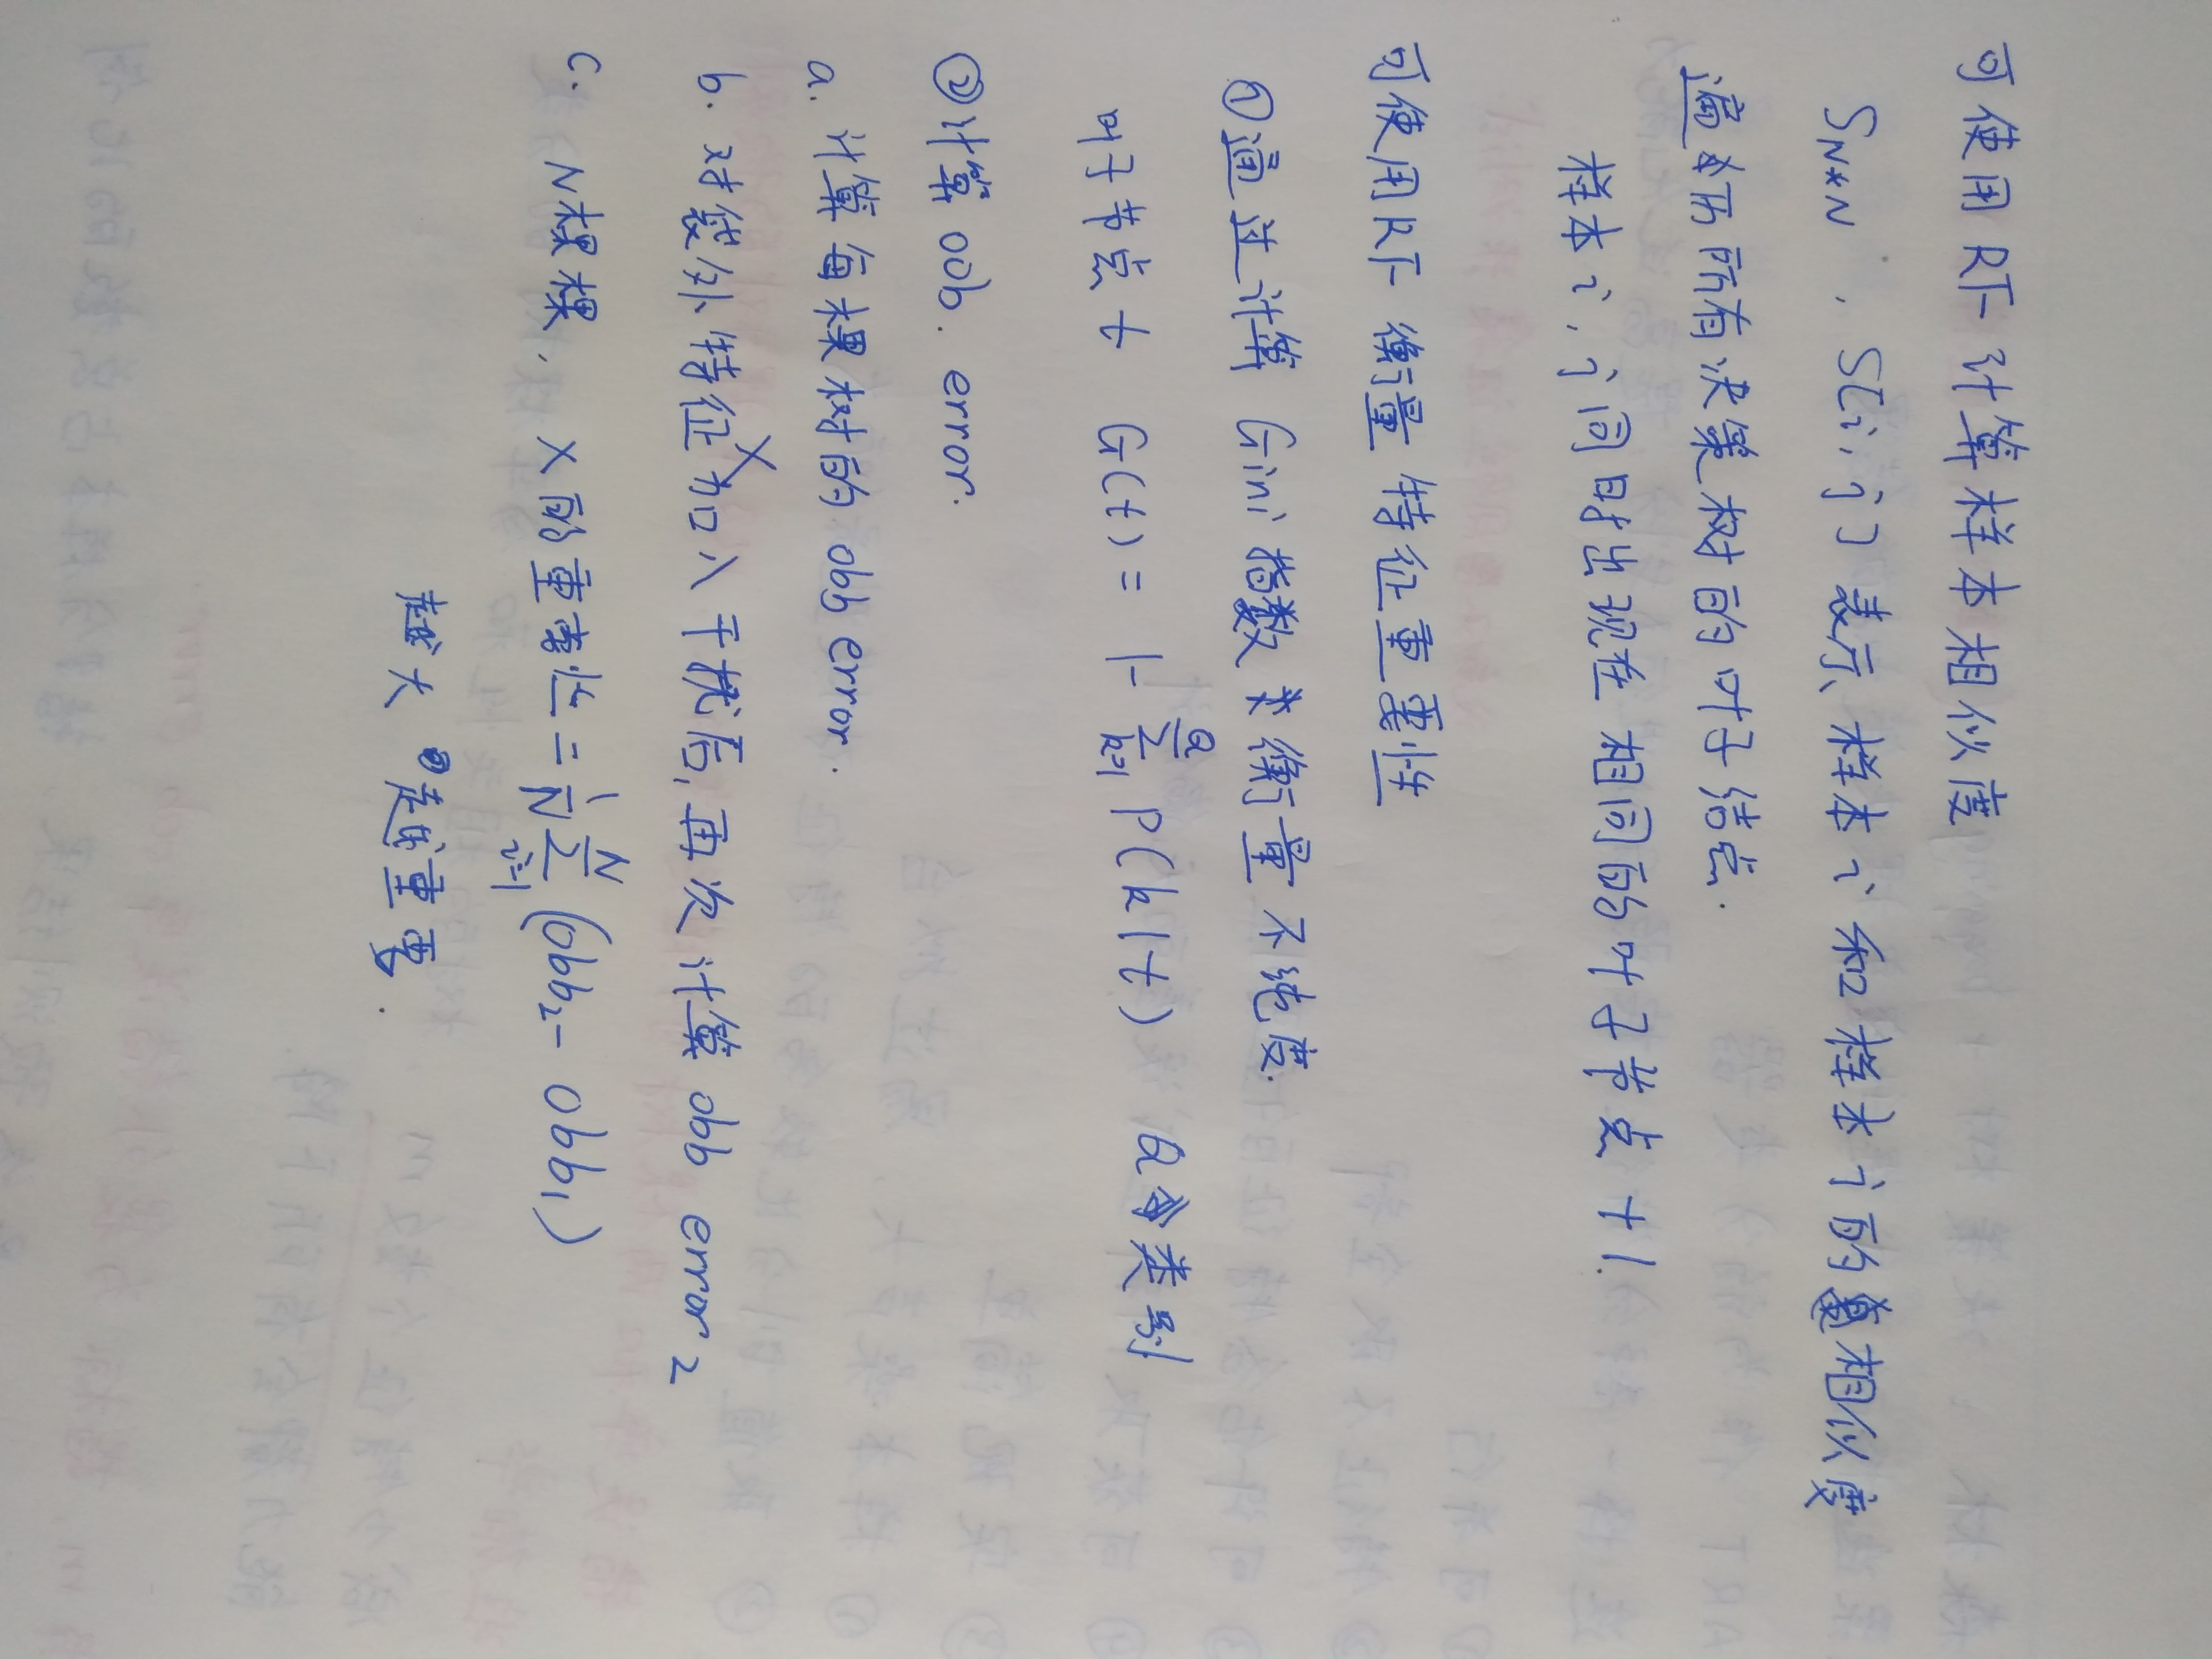 可使用RF计算样本相似度
SN*N , S[i,j] 表示样本i 和样本j的相似度
遍历所有决策树的叶子结点.
样本i,j同时出现在相同的叶子节点 +1.
可使用RF 衡量特征重要性
①通过计算 Gini指数来衡量不纯度.
叶子节点 t G(t) = 1- Q∑k=1 P(k|t) Q个类别
②计算 oob. error.
a. 计算每棵树的 obb error.
b. 对袋外特征X加入干扰后,再次计算 obb error 2
c. N棵棵, X的重要性 = 1/N N∑i=1 (obb2 - obb1)
越大 越重要.